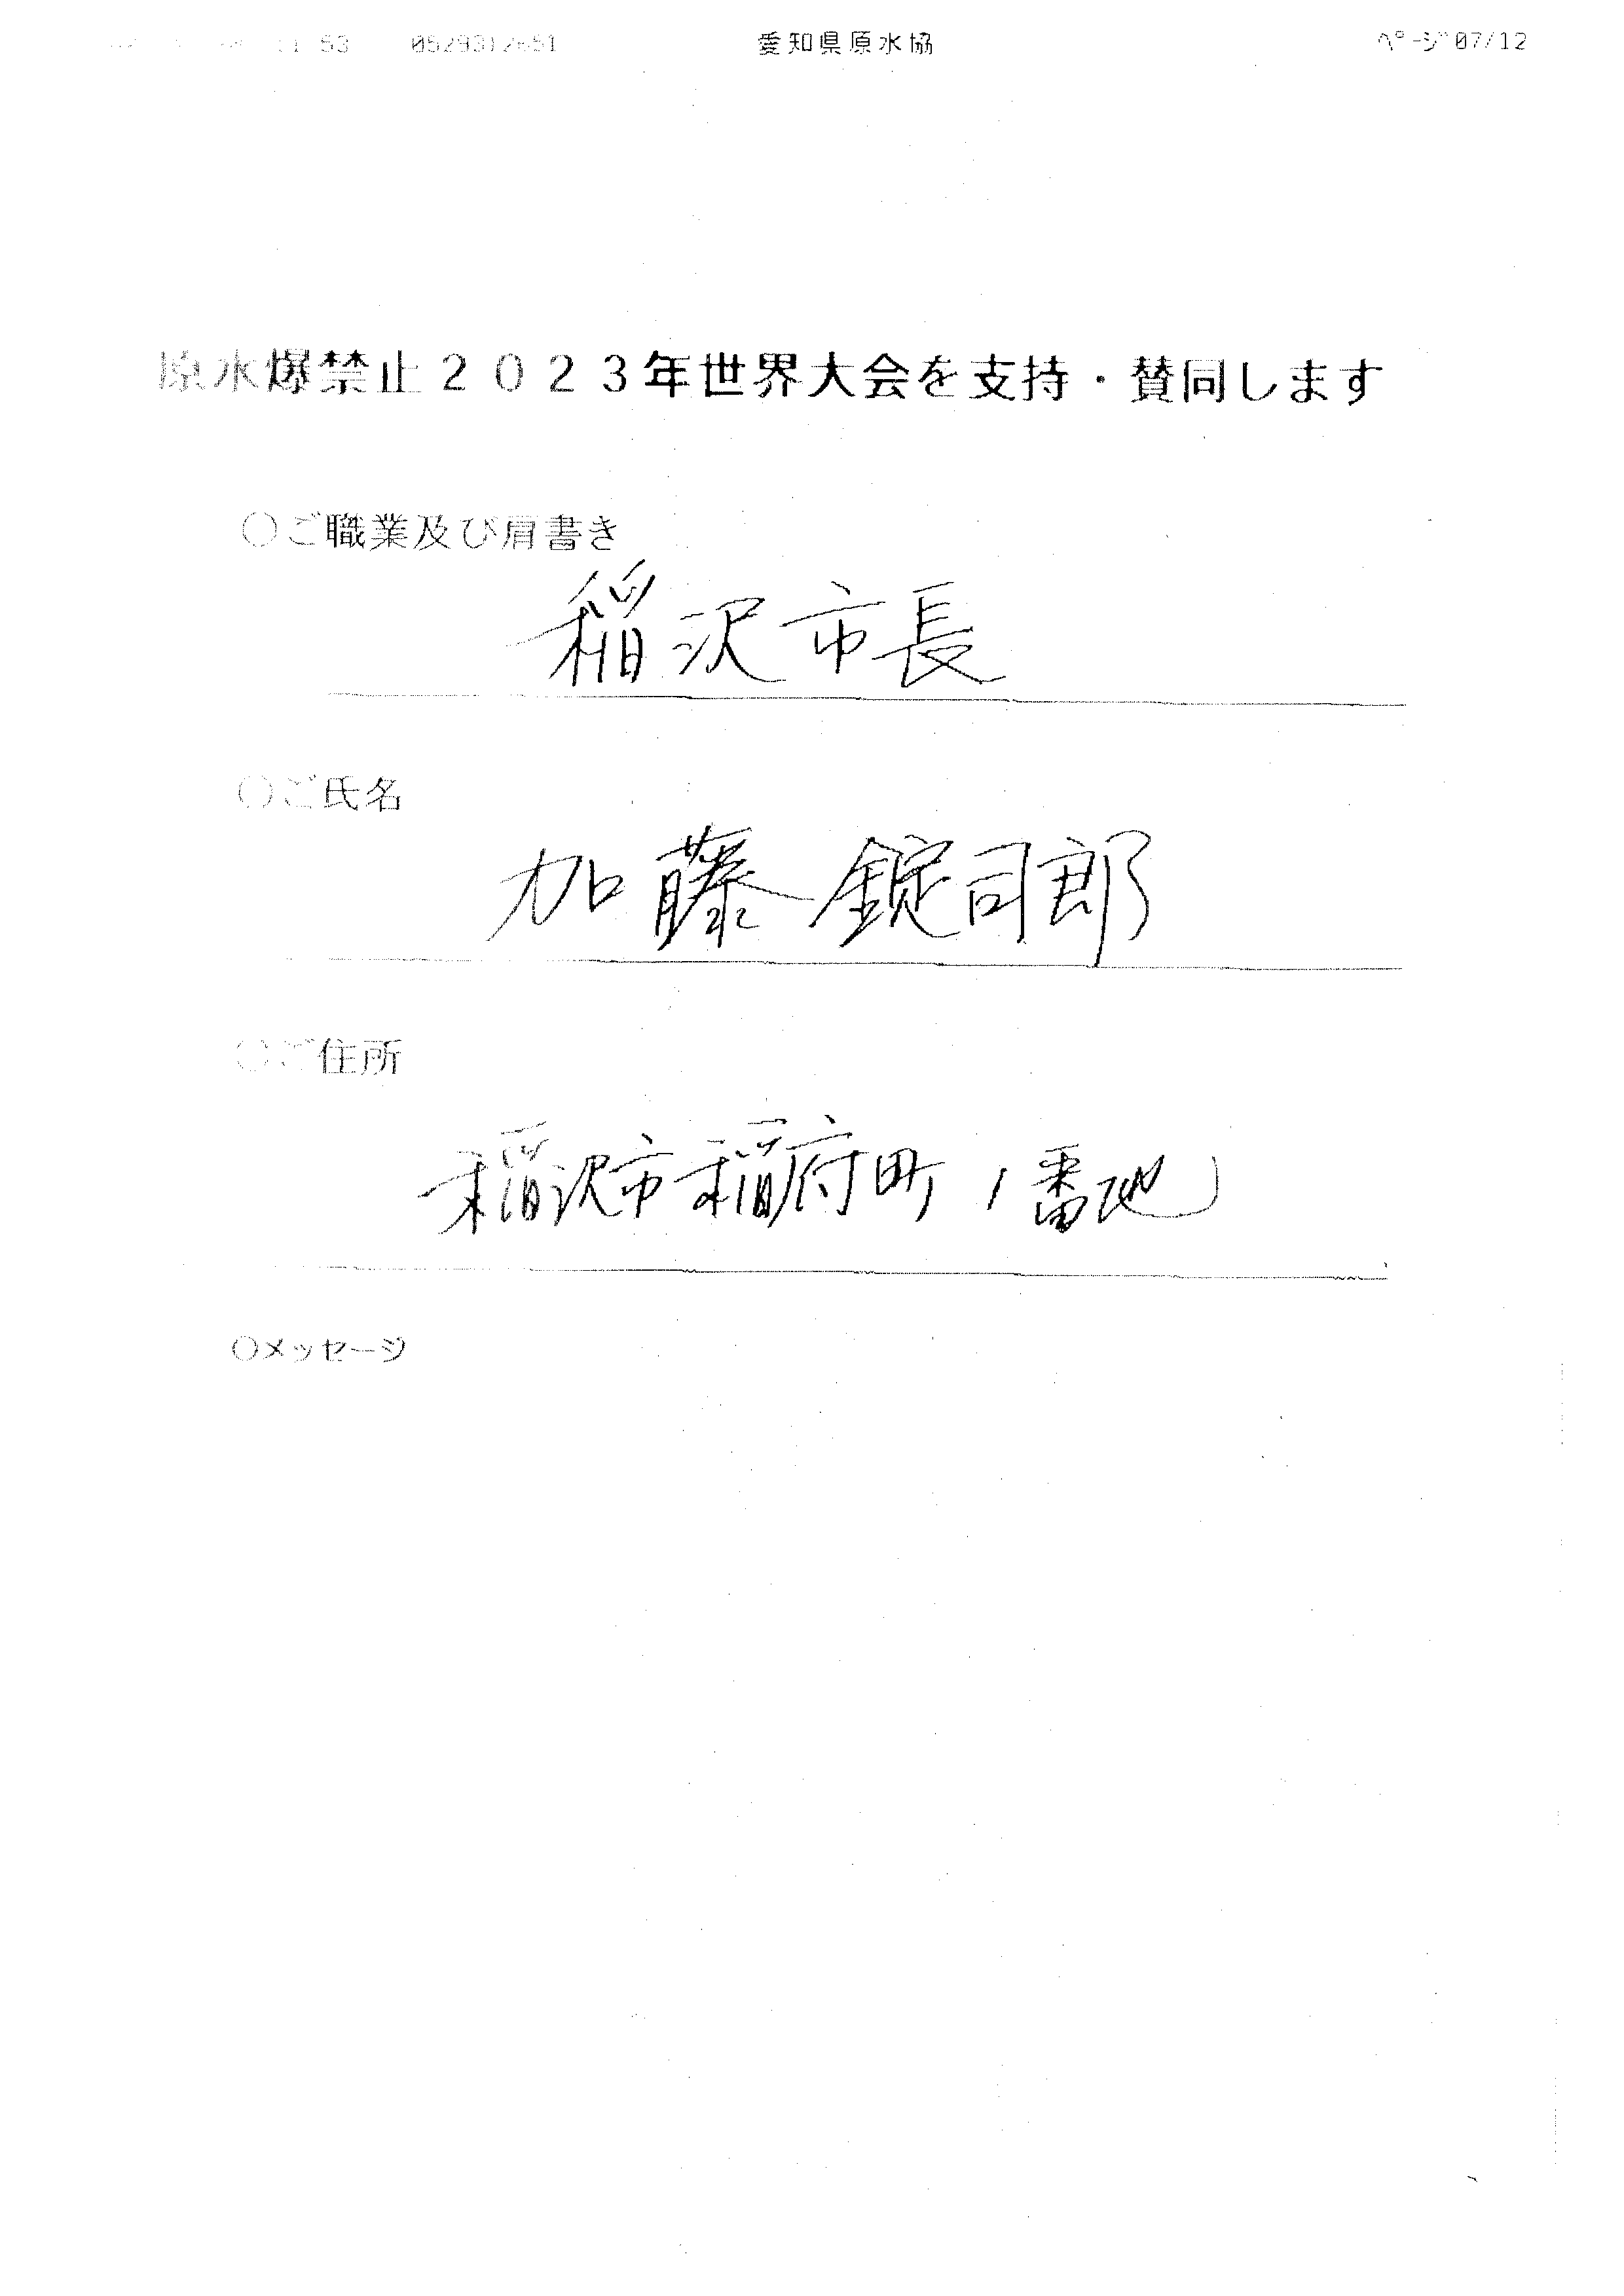 53 愛知県原水協 ページ07/12
原水爆禁止2023年世界大会を支持・賛同します
○ご職業及び肩書き
稲沢市長
○ご氏名
加藤錠司郎
○ご住所
稲沢市稲府町1番地
○メッセージ